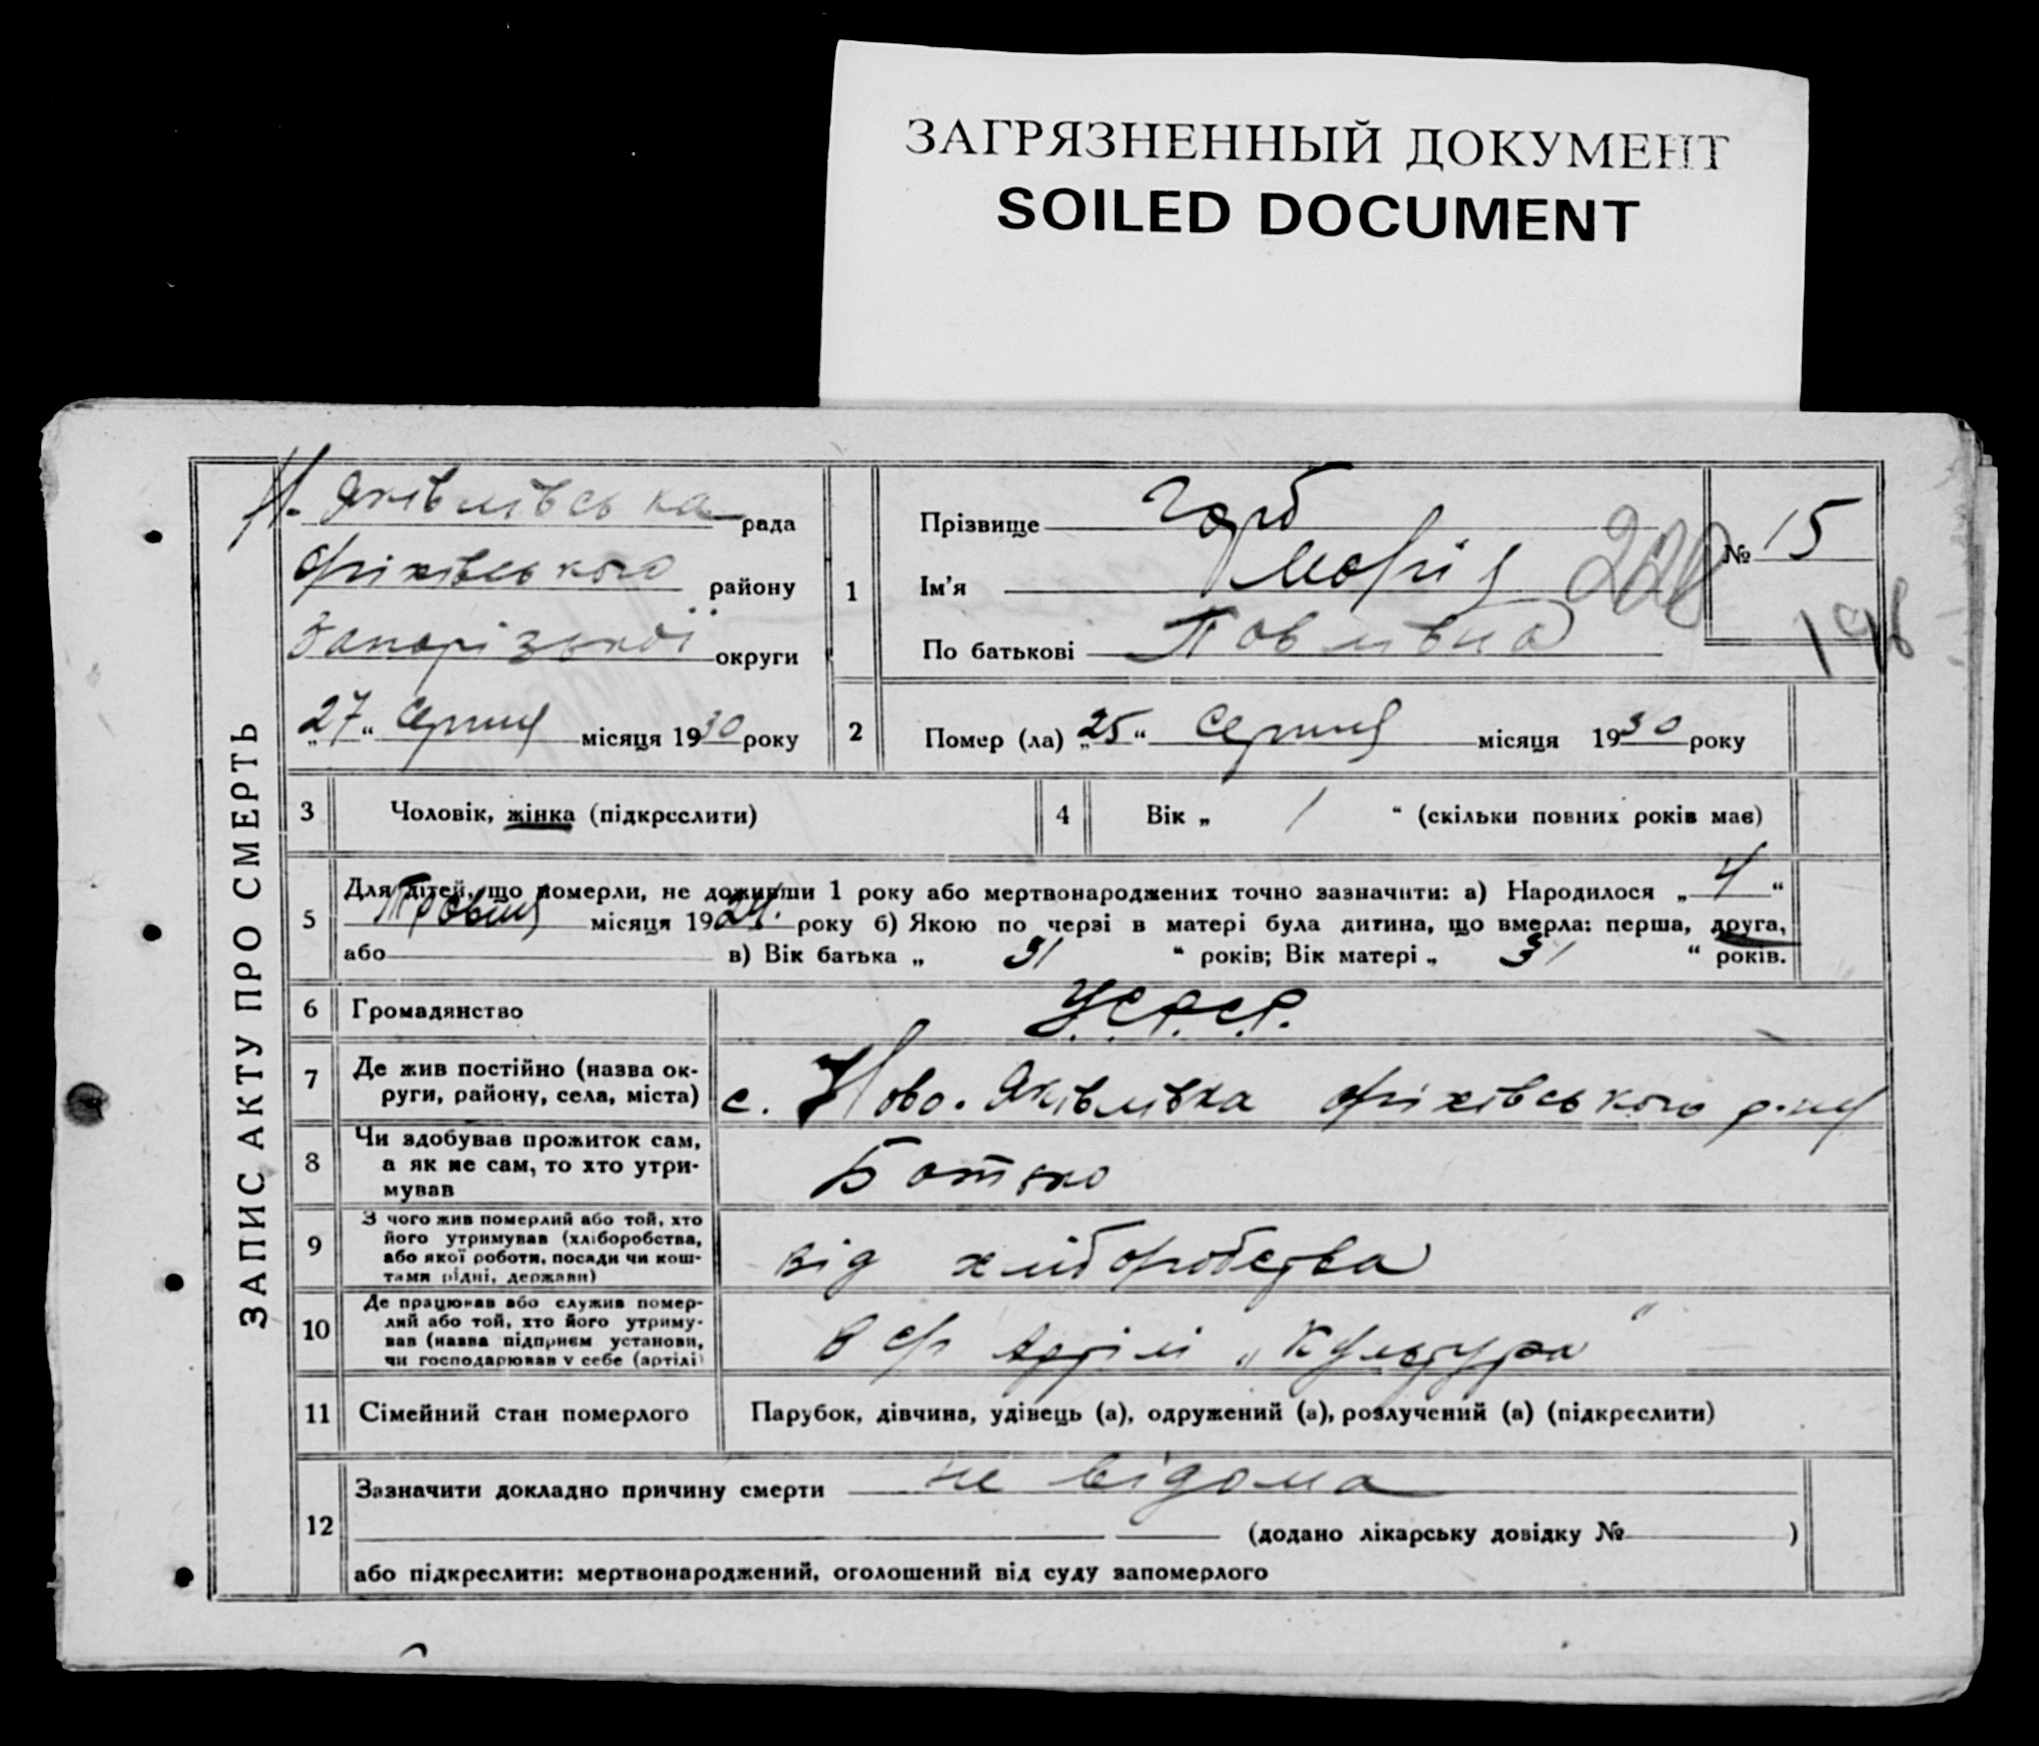 ЗАГРЯЗНЕННЫЙ ДОКУМЕНТ
SOILED DOCUMENT
ЗАПИС АКТУ ПРО СМЕРТЬ
Н. Яківлівська рада
Оріхівського району
Запорізької округи
„27“ Серпня місяця 1930 року
1
Прізвище Горб
Ім'я Марія
По батькові Павлівна
№ 15
220
196
2
Помер (ла) „25“ Серпня місяця 1930 року
3
Чоловік, жінка (підкреслити)
4
Вік „ 1 “ (скільки повних років має)
5
Для дітей, що померли, не доживши 1 року або мертвонароджених точно зазначити: а) Народилося „4“
Травня місяця 1929. року б) Якою по черзі в матері була дитина, що вмерла: перша, друга,
або в) Вік батька „ 31 “ років; Вік матері „ 31 “ років.
6
Громадянство
У.С.Р.С.Р.
7
Де жив постійно (назва ок-
руги, району, села, міста)
с. Ново-Яківлівка Оріхівського р-ну
8
Чи здобував прожиток сам,
а як не сам, то хто утри-
мував
Батько
9
З чого жив померлий або той, хто
його утримував (хліборобства,
або якої роботи, посади чи кош-
тами рідні, держави)
від хліборобства
10
Де працював або служив помер-
лий або той, хто його утриму-
вав (назва підприєм установи,
чи господарював у себе (артілі)
В с/г Артілі „Культура“
11
Сімейний стан померлого
Парубок, дівчина, удівець (а), одружений (а), розлучений (а) (підкреслити)
12
Зазначити докладно причину смерти не відома
(додано лікарську довідку № )
або підкреслити: мертвонароджений, оголошений від суду запомерлого